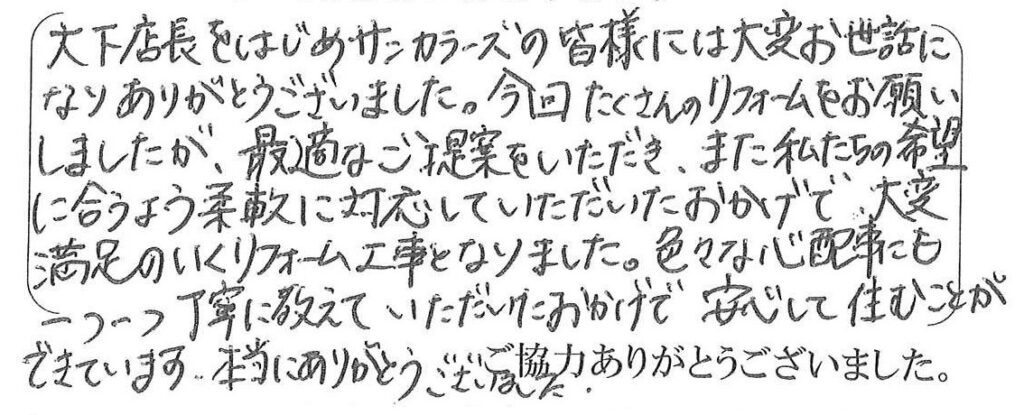 大下店長をはじめサンカラーズの皆様には大変お世話に
なりありがとうございました。今回たくさんのリフォームをお願い
しましたが、最適なご提案をいただき、また私たちの希望
に合うよう柔軟に対応していただいたおかげで、大変
満足のいくリフォーム工事となりました。色々な心配事にも
一つ一つ丁寧に教えていただいたおかげで安心して住むことが
できています。本当にありがとうございました。
ご協力ありがとうございました。